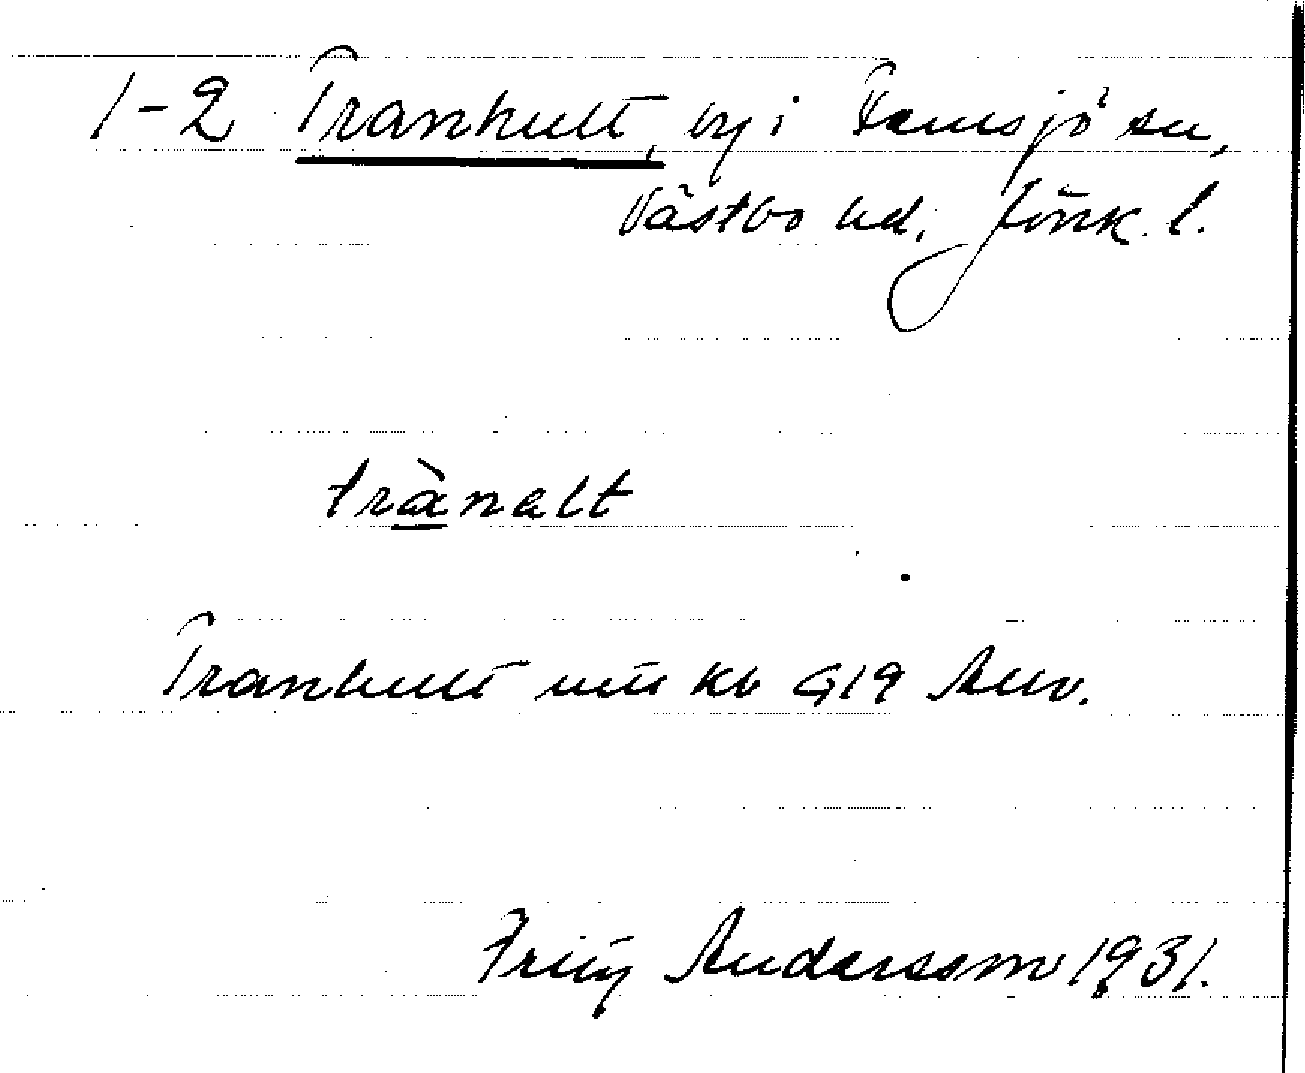 1-2 Tranhult, by i Femsjö sn,
Västbo hd, Jönk. l.
trànalt
Tranhult utt kb G19 Allv.
Fritz Andersson 1931.